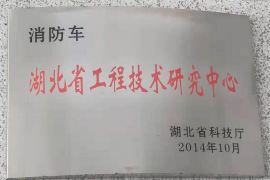 消防车
湖北省工程技术研究中心
湖北省科技厅
2014年10月